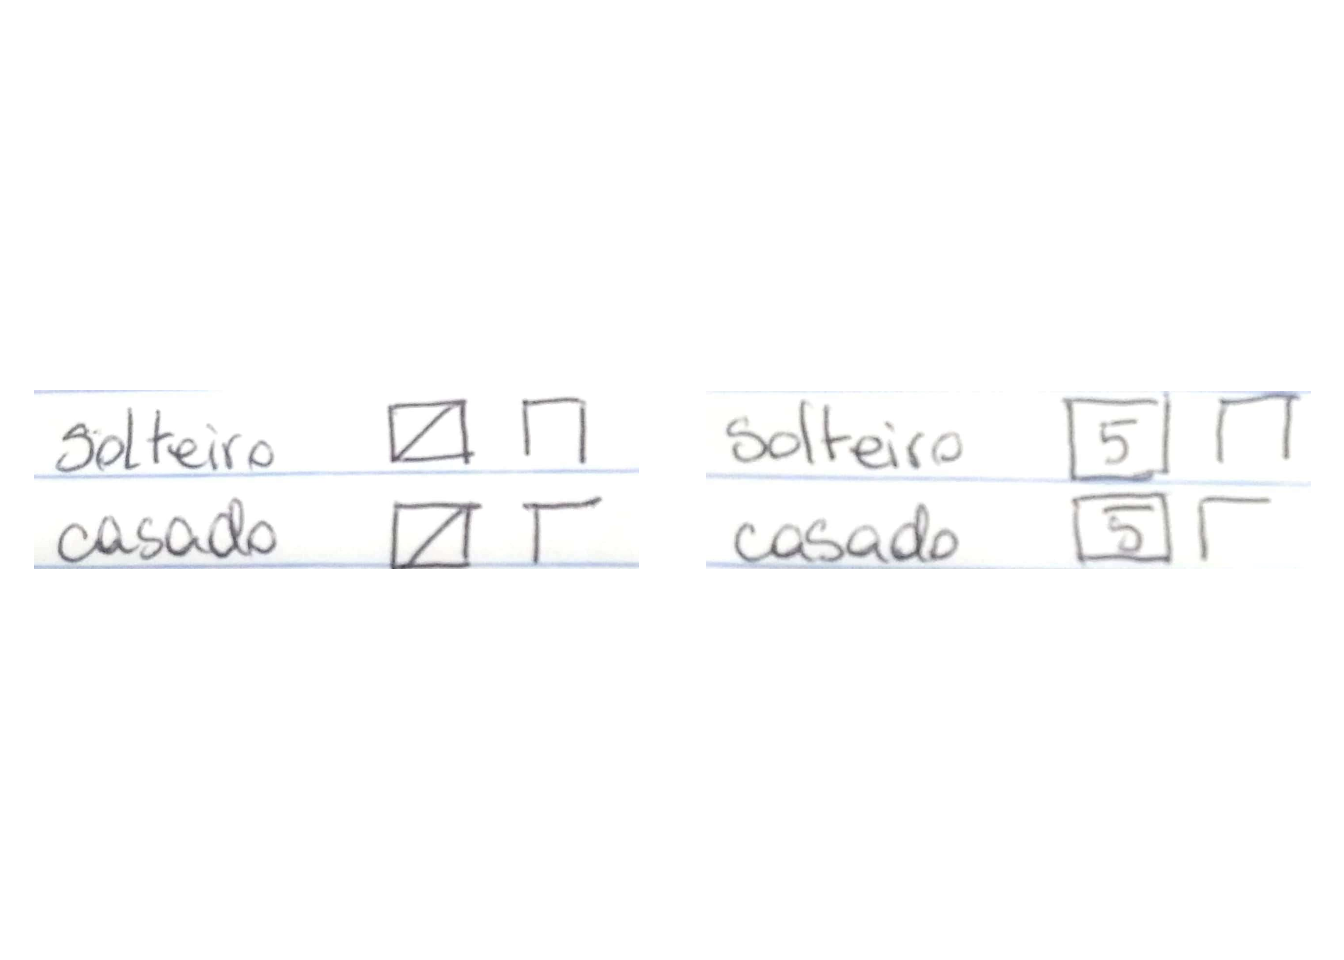 solteiro
casado
solteiro 5
casado 5